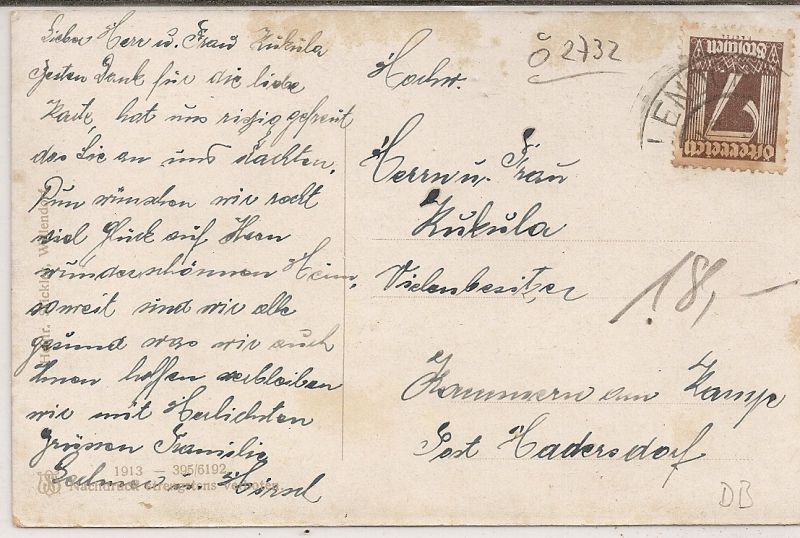 Lieber Herr u. Frau Kukula
Besten Dank für die liebe
Karte, hat uns risig gefreut
das Sie an uns dachten,
Nun wünschen wir recht
viel Glück auf Ihren
wunderschönnen Heim,
soweit sind wir alle
gesund was wir auch
Ihnen hoffen verbleiben
wir mit Herlichten
Grüssen Familie
u. Hörsch
1913 — 395/6192
Nachdruck strengstens verboten
Ö 2732
Hochw.
Herrn u. Frau
Kukula
Vielenbesitzer
Kammern am Kamp
Post Hadersdorf
18,—
DB
7
Kronen
Österreich
LEN